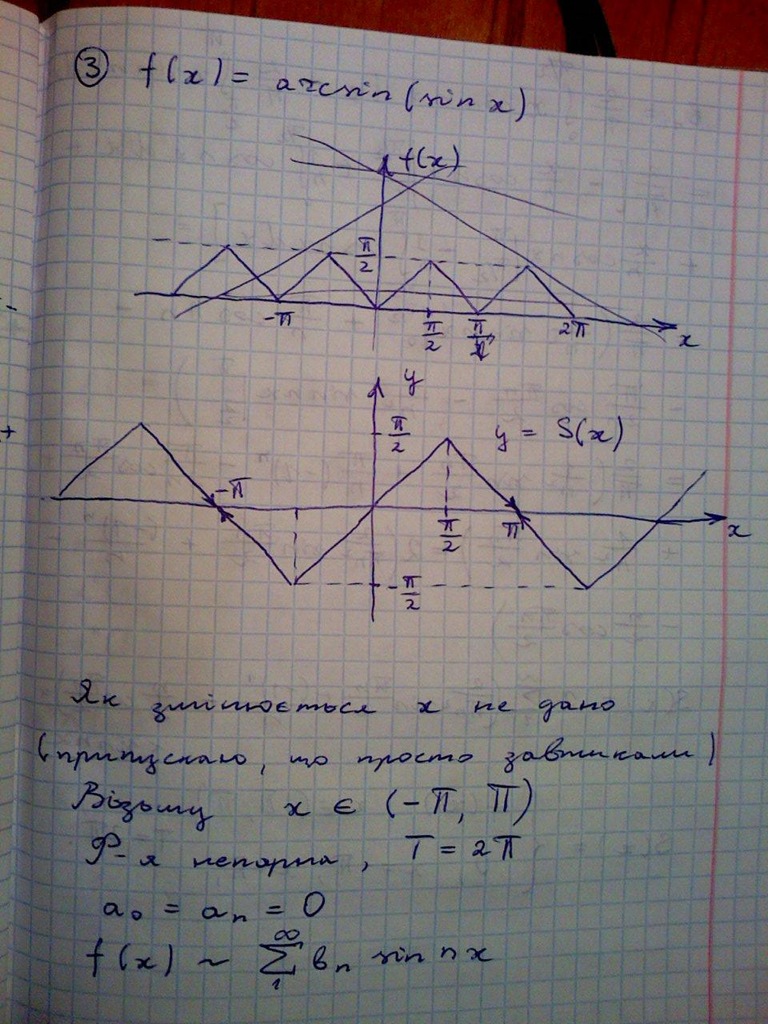 ③ f(x) = arcsin(sin x)
f(x)
π/2
-π π/2 π 2π x
y
π/2 y = S(x)
-π π/2 π x
-π/2
Як змінюється x не дано
(припускаю, що просто завтикали)
Візьму x ∈ (-π, π)
Ф-я непарна, T = 2π
a₀ = aₙ = 0
f(x) ~ ∑₁^∞ bₙ sin nx